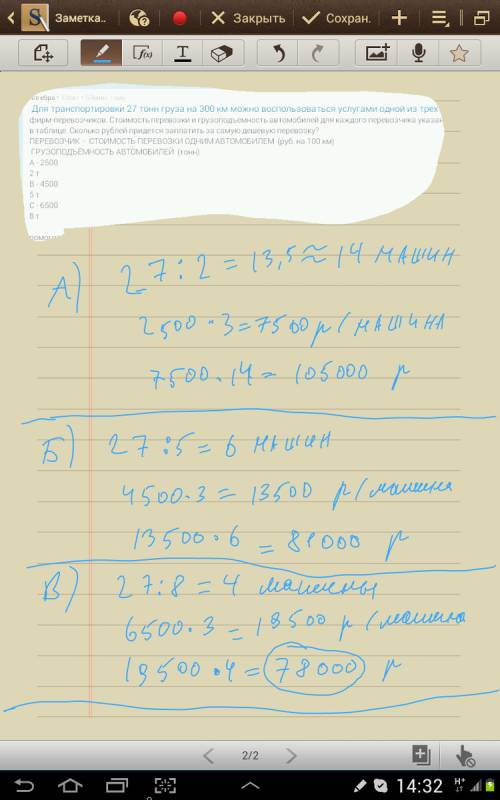 Заметка..
Закрыть
Сохран.
f(x)
T
Для транспортировки 27 тонн груза на 300 км можно воспользоваться услугами одной из трех
фирм-перевозчиков. Стоимость перевозки и грузоподъемность автомобилей для каждого перевозчика указан
в таблице. Сколько рублей придется заплатить за самую дешевую перевозку?
ПЕРЕВОЗЧИК - СТОИМОСТЬ ПЕРЕВОЗКИ ОДНИМ АВТОМОБИЛЕМ (руб. на 100 км)
ГРУЗОПОДЪЁМНОСТЬ АВТОМОБИЛЕЙ (тонн)
А - 2500
2 т
В - 4500
5 т
С - 6500
8 т
А) 27 : 2 = 13,5 ≈ 14 МАШИН
2500 · 3 = 7500 р / МАШИНА
7500 · 14 = 105000 р
Б) 27 : 5 = 6 МАШИН
4500 · 3 = 13500 р / машина
13500 · 6 = 81000 р
В) 27 : 8 = 4 машины
6500 · 3 = 19500 р / машина
19500 · 4 = 78000 р
2/2
14:32